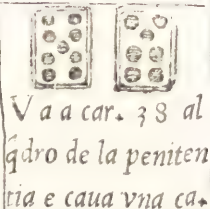 Va a car. 38 al
q̃dro de la peniten
tia e caua vna ca.